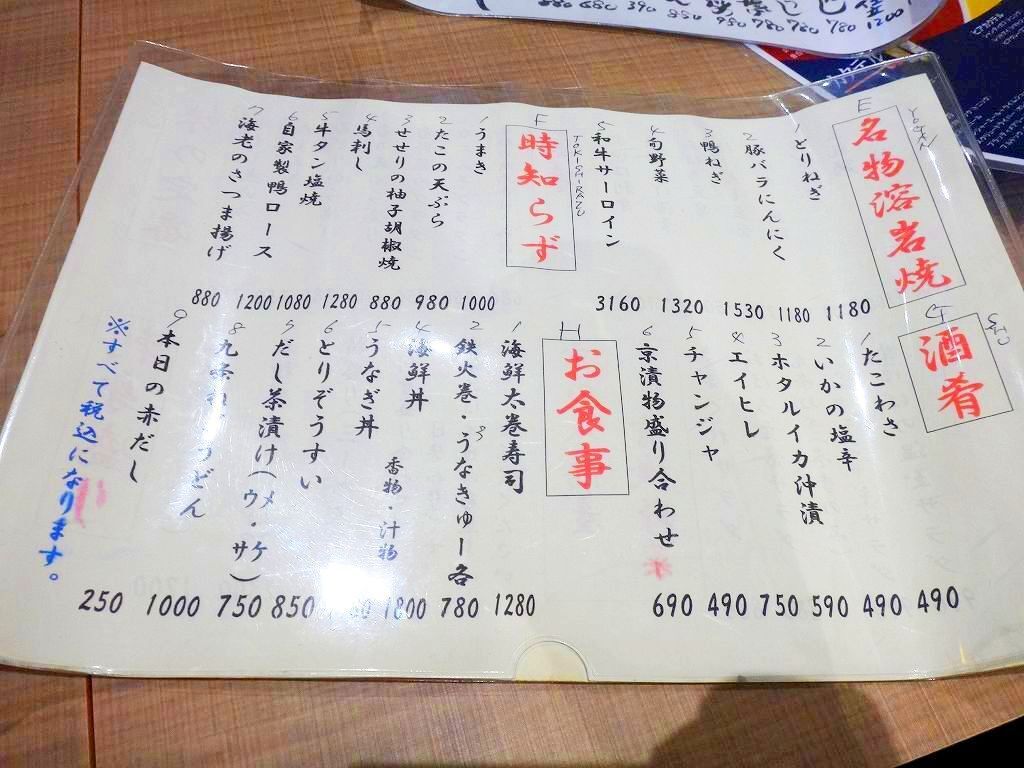 E
名物溶岩焼
1 とりねぎ 1180
2 豚バラにんにく 1180
3 鴨ねぎ 1530
4 旬野菜 1320
5 和牛サーロイン 3160
F
時知らず
TOKISHIRAZU
1 うまき 1000
2 たこの天ぷら 980
3 せせりの柚子胡椒焼 880
4 馬刺し 1280
5 牛タン塩焼 1080
6 自家製鴨ロース 1200
7 海老のさつま揚げ 880
G
酒肴
1 たこわさ 490
2 いかの塩辛 490
3 ホタルイカ沖漬 590
4 エイヒレ 750
5 チャンジャ 490
6 京漬物盛り合わせ 690
H
お食事
1 海鮮太巻寿司 1280
2 鉄火巻・3 うなきゅー各 780
4 海鮮丼 1800
5 うなぎ丼
香物・汁物
6 とりぞうすい 850
7 だし茶漬け(ウメ・サケ) 750
8 九条 うどん 1000
9 本日の赤だし 250
※すべて税込になります。
880 680 390 850 950 780 780 780 1200